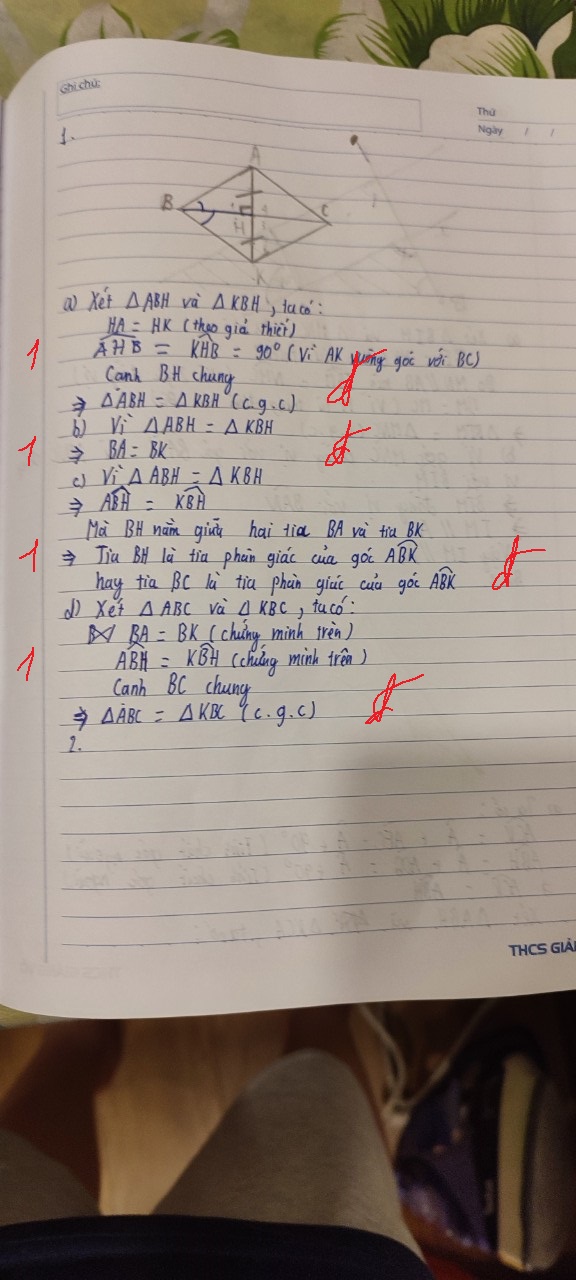 Ghi chú:
Thứ
Ngày / /
1.
A
B
C
H
K
a) Xét △ABH và △KBH, ta có:
HA = HK (theo giả thiết)
1
AHB = KHB = 90° (Vì AK vuông góc với BC)
Cạnh BH chung
đ
⇒ △ABH = △KBH (c.g.c)
b) Vì △ABH = △KBH
1
⇒ BA = BK
đ
c) Vì △ABH = △KBH
⇒ ABH = KBH
Mà BH nằm giữa hai tia BA và tia BK
1
⇒ Tia BH là tia phân giác của góc ABK
đ
hay tia BC là tia phân giác của góc ABK
d) Xét △ABC và △KBC, ta có:
BA = BK (chứng minh trên)
1
ABH = KBH (chứng minh trên)
Cạnh BC chung
⇒ △ABC = △KBC (c.g.c)
đ
2.
THCS GIẢ